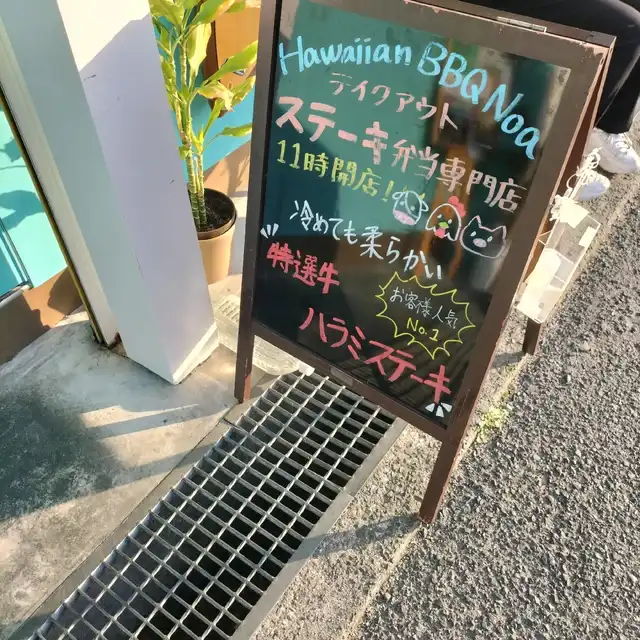 Hawaiian BBQ Noa
テイクアウト
ステーキ弁当専門店
11時開店!
冷めても柔らかい
特選牛
お客様人気
No.1
ハラミステーキ